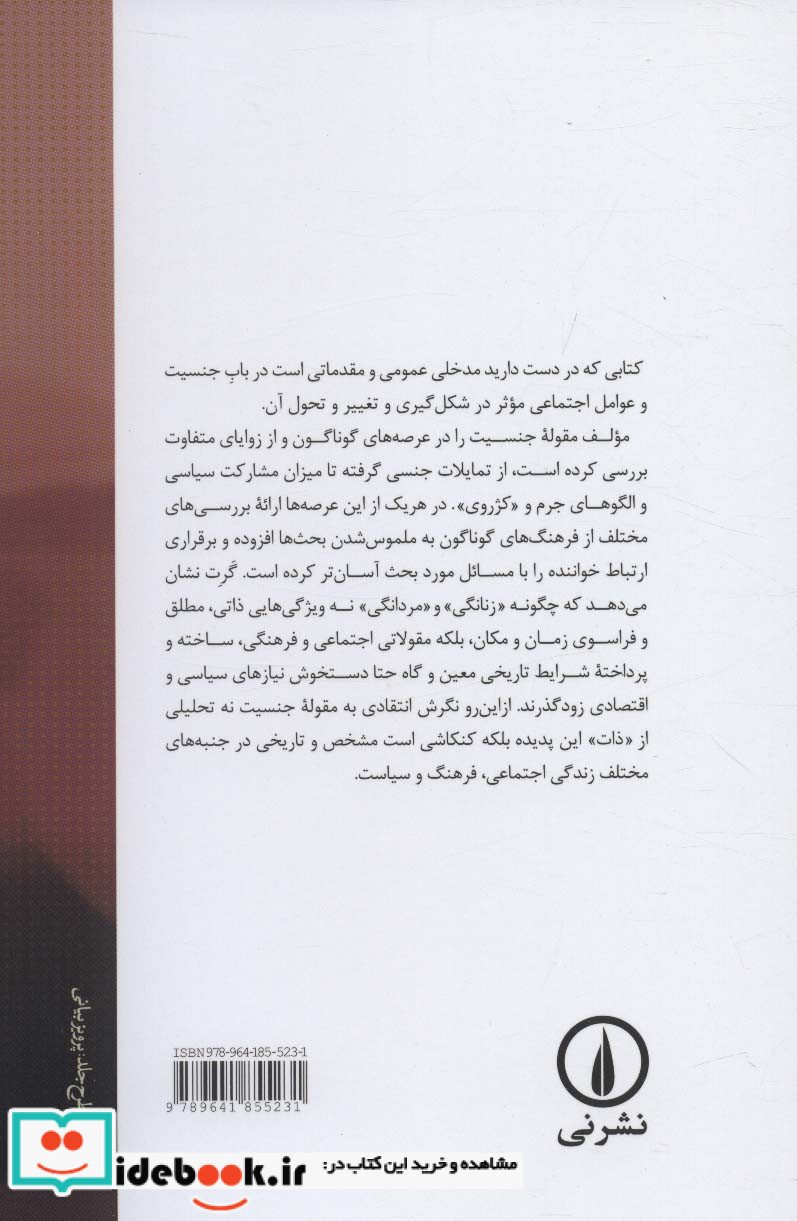 کتابی که در دست دارید مدخلی عمومی و مقدماتی است در بابِ جنسیت
و عوامل اجتماعی مؤثر در شکل‌گیری و تغییر و تحول آن.
مؤلف مقولهٔ جنسیت را در عرصه‌های گوناگون و از زوایای متفاوت
بررسی کرده است، از تمایلات جنسی گرفته تا میزان مشارکت سیاسی
و الگوهای جرم و «کژروی». در هریک از این عرصه‌ها ارائهٔ بررسی‌های
مختلف از فرهنگ‌های گوناگون به ملموس‌شدن بحث‌ها افزوده و برقراری
ارتباط خواننده را با مسائل مورد بحث آسان‌تر کرده است. گَرِت نشان
می‌دهد که چگونه «زنانگی» و «مردانگی» نه ویژگی‌هایی ذاتی، مطلق
و فراسوی زمان و مکان، بلکه مقولاتی اجتماعی و فرهنگی، ساخته و
پرداختهٔ شرایط تاریخی معین و گاه حتا دستخوش نیازهای سیاسی و
اقتصادی زودگذرند. ازاین‌رو نگرش انتقادی به مقولهٔ جنسیت نه تحلیلی
از «ذات» این پدیده بلکه کنکاشی است مشخص و تاریخی در جنبه‌های
مختلف زندگی اجتماعی، فرهنگ و سیاست.
طرح جلد: پرویز بیانی
ISBN 978-964-185-523-1
9 789641 855231
نشرنی
مشاهده و خرید این کتاب در:
idebook.ir